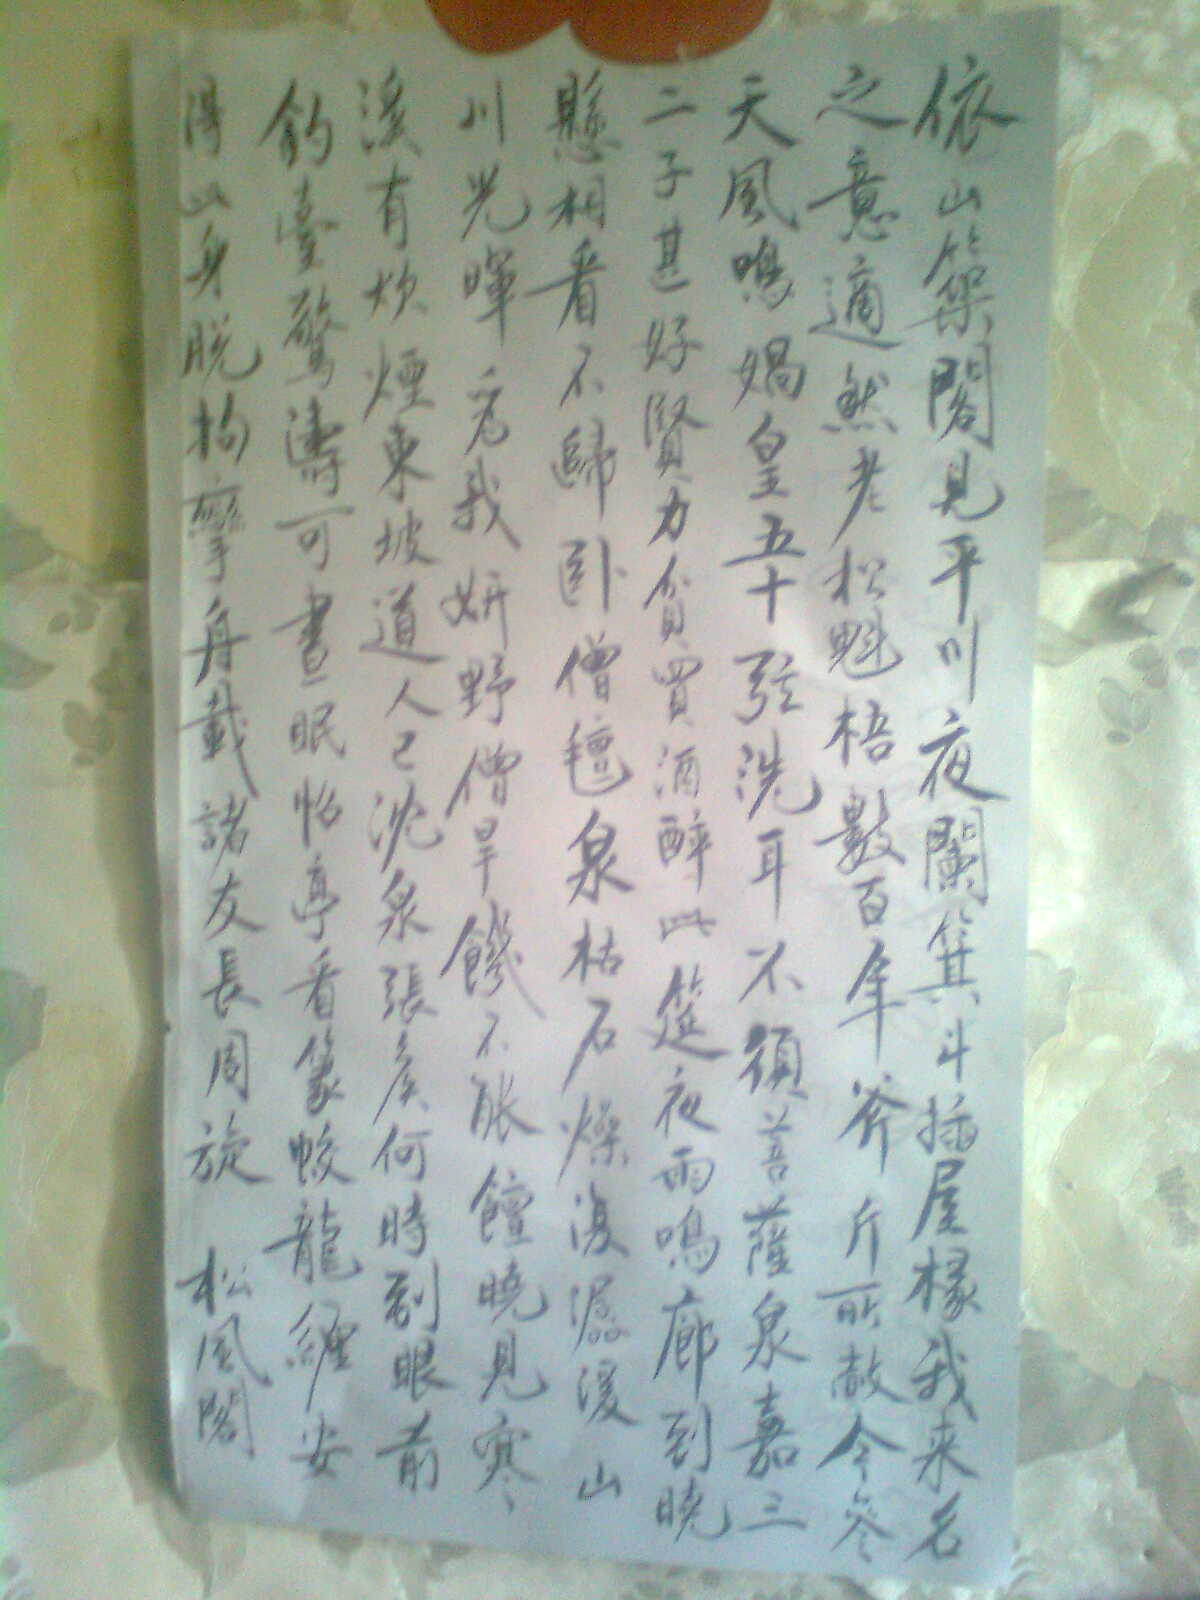 依山築閣見平川夜闌箕斗插屋椽我来名
之意適然老松魁梧數百年斧斤所赦今參
天風鳴媧皇五十弦洗耳不須菩薩泉嘉三
二子甚好賢力貧買酒醉此筵夜雨鳴廊到曉
懸相看不歸臥僧氊泉枯石燥復潺湲山
川光暉為我妍野僧旱饑不能饘曉見寒
溪有炊煙東坡道人已沈泉張侯何時到眼前
釣臺驚濤可晝眠怡亭看篆蛟龍纏安
得此身脱拘攣舟載諸友長周旋 松風閣